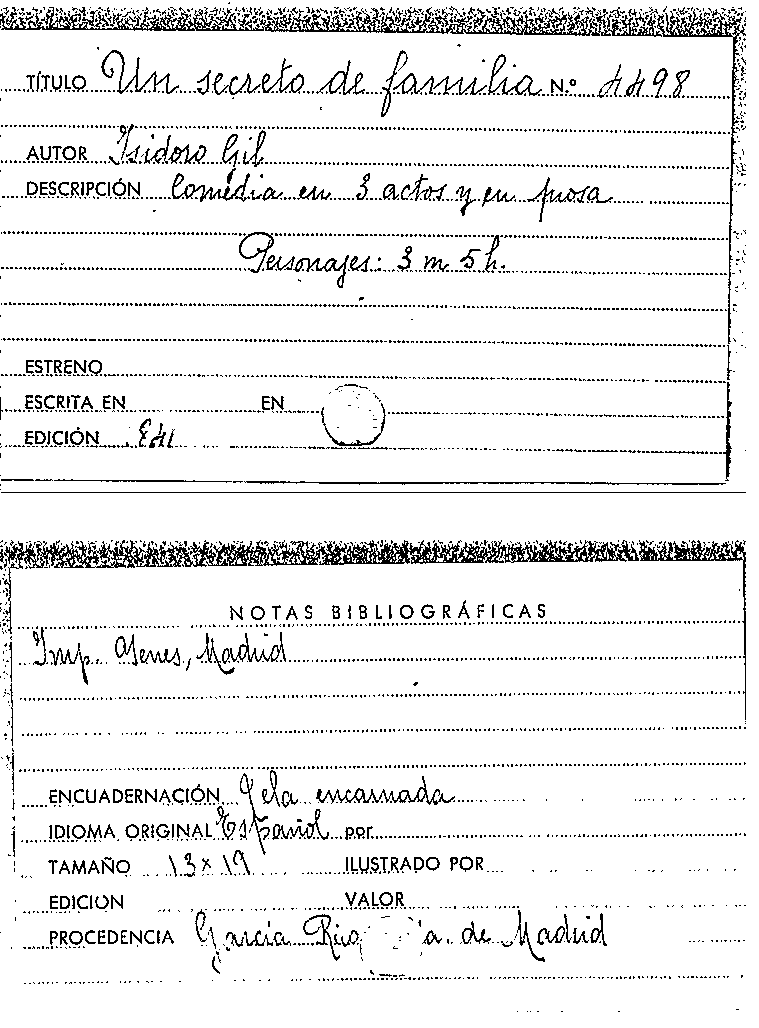 TÍTULO Un secreto de familia N.º 4498
AUTOR Isidoro Gil
DESCRIPCIÓN Comedia en 3 actos y en prosa
Personajes: 3 m 5 h.
ESTRENO
ESCRITA EN EN
EDICIÓN
NOTAS BIBLIOGRÁFICAS
Imp. Yenes, Madrid
ENCUADERNACIÓN Tela encarnada
IDIOMA ORIGINAL Español por
TAMAÑO 13 x 19 ILUSTRADO POR
EDICION VALOR
PROCEDENCIA García Rico a. de Madrid